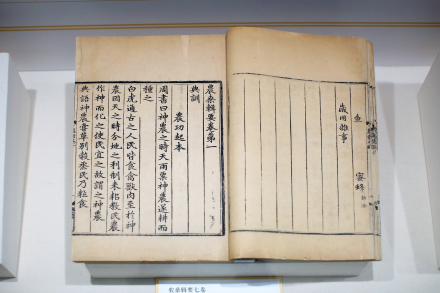 魚 蜜蜂
歲用雜事
農桑輯要卷第一
典訓
農功起本
周書曰神農之時天雨粟神農遂耕而
種之
白虎通古之人民皆食禽獸肉至於神
農因天之時分地之利制耒耜教民農
作神而化之使民宜之故謂之神農
典語神農嘗草別穀烝民乃粒食
农桑辑要七卷